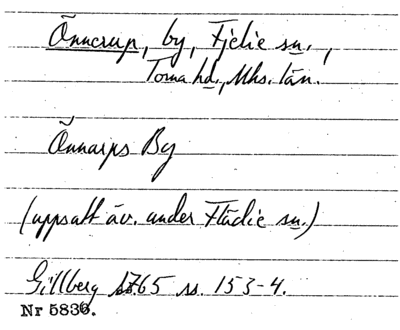 Önnerup, by, Fjelie sn.,
Torna hd., Mhs. län.
Önnarps By
(uppsatt äv. under Flädie sn.)
Gillberg 1765 ss. 153-4.
Nr 5836.